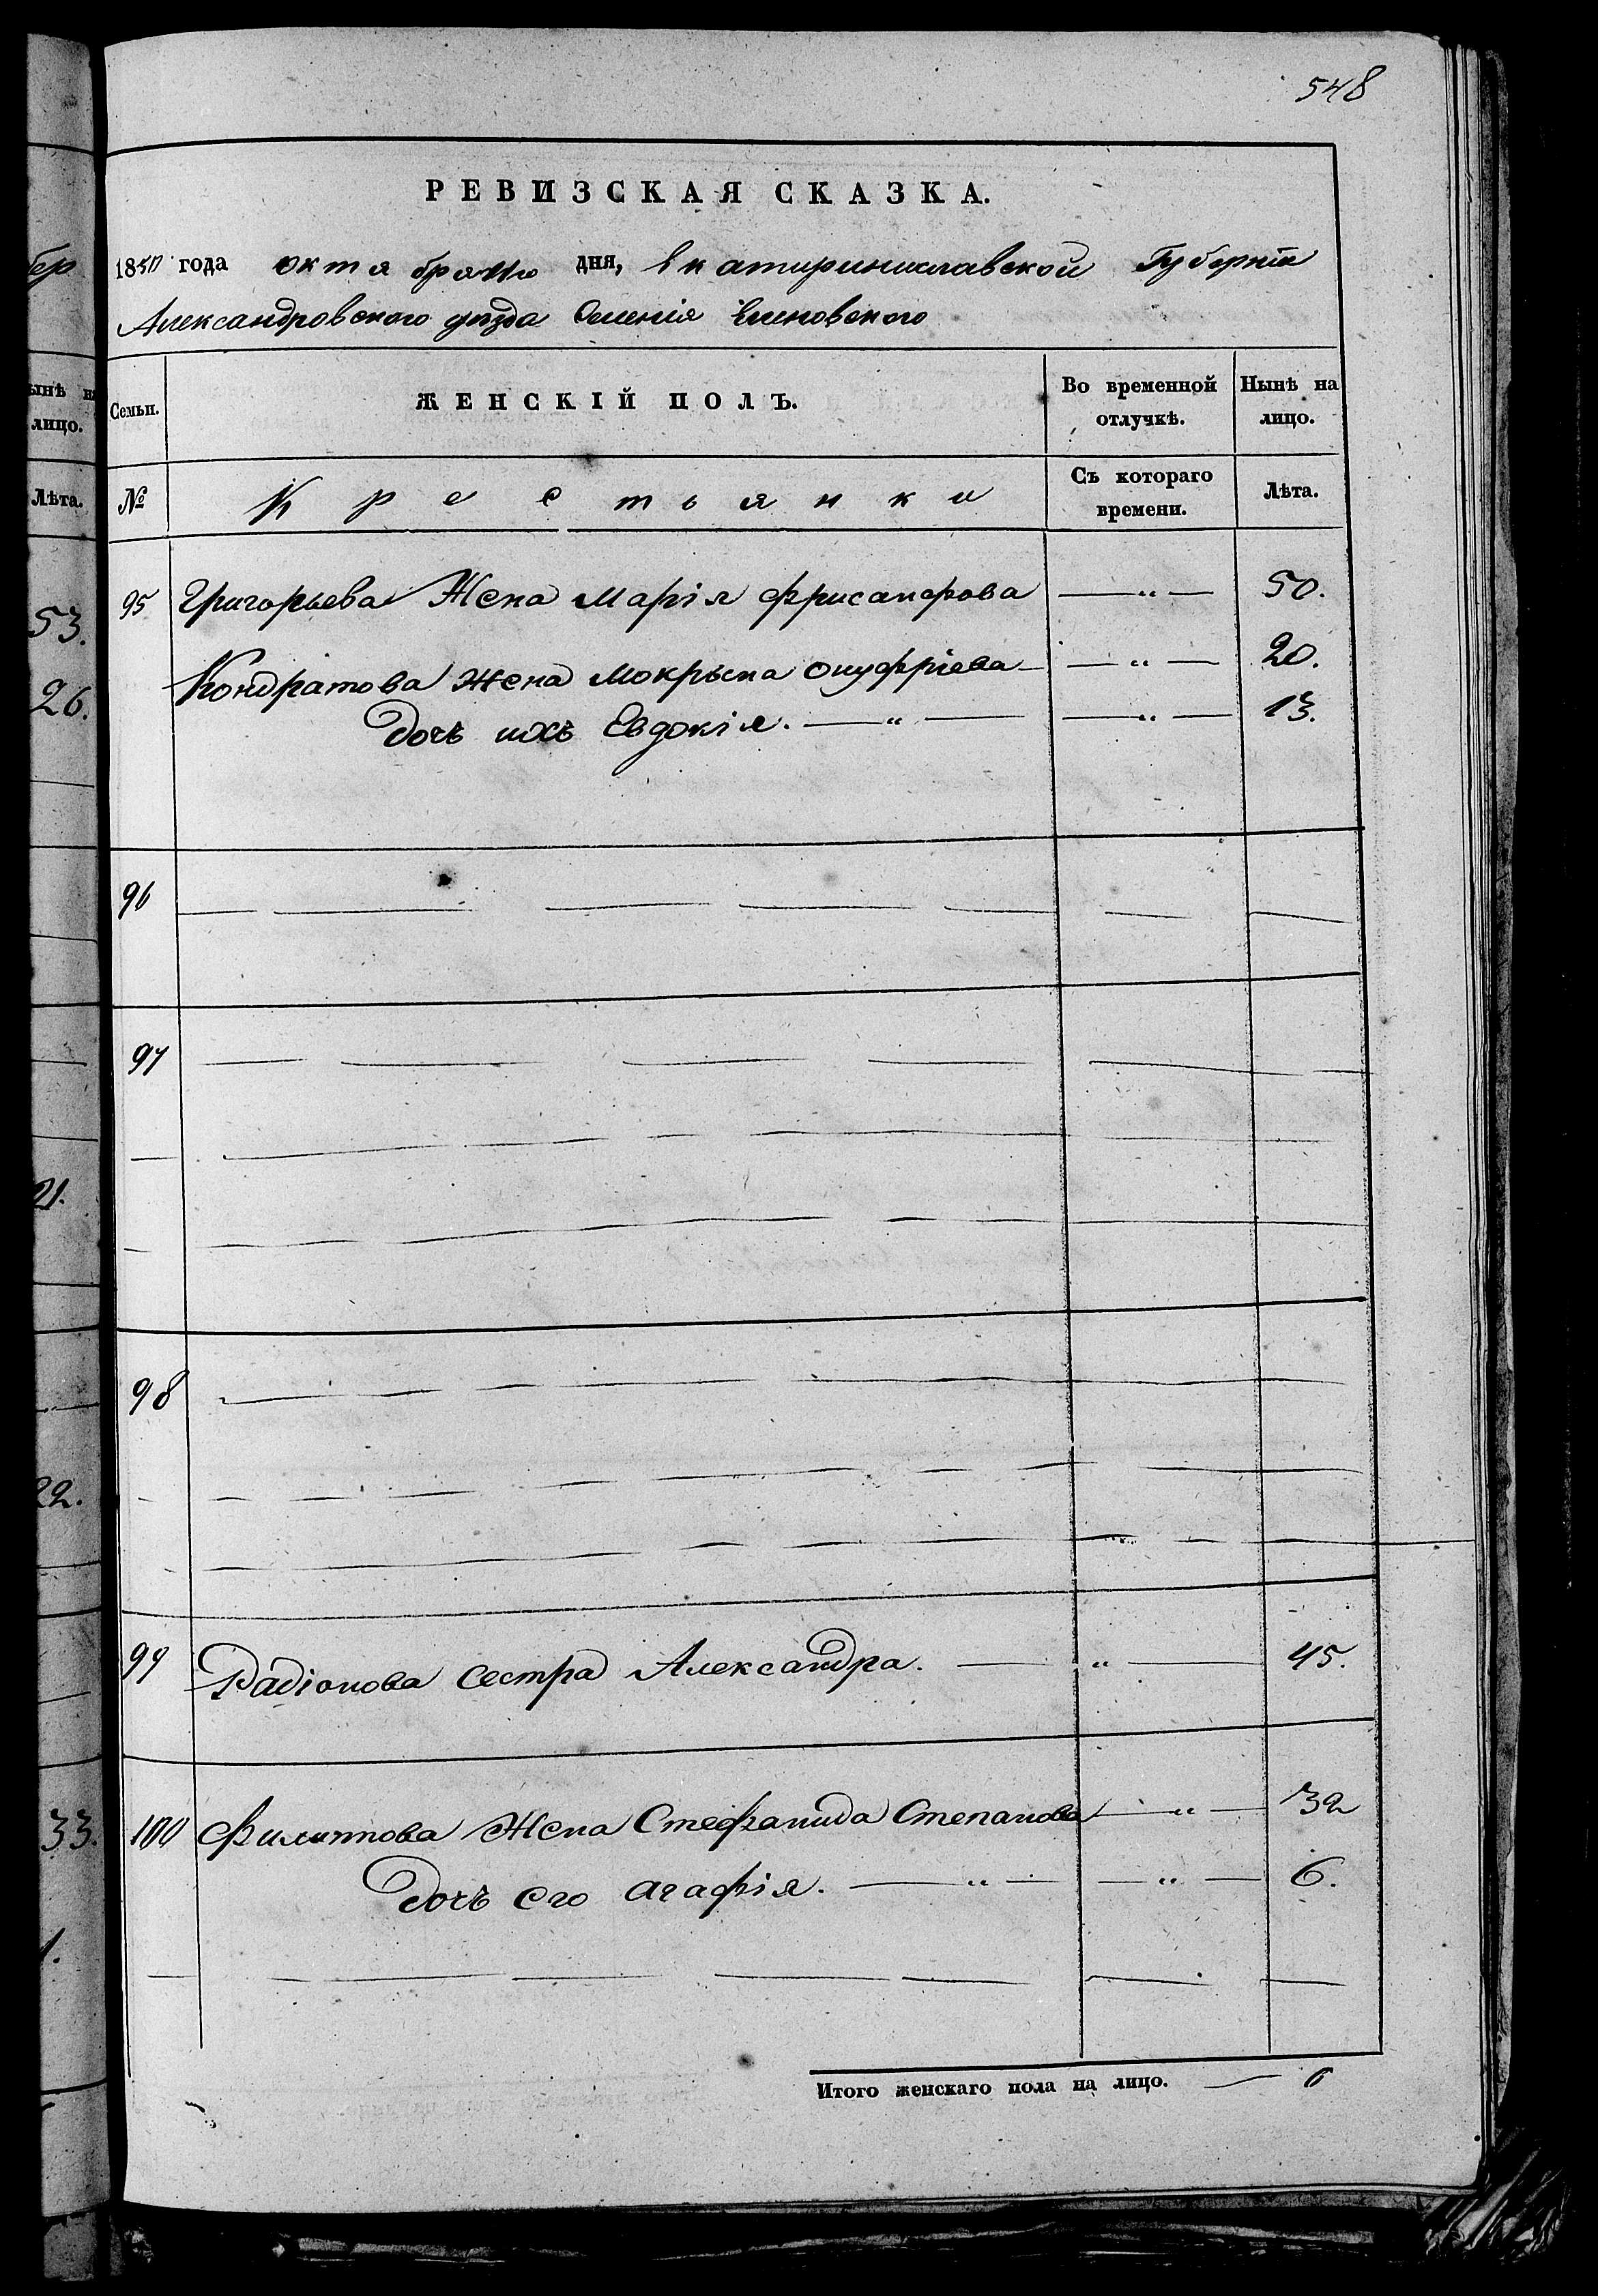 548
РЕВИЗСКАЯ СКАЗКА.
1850 года октября дня, Екатиринославской Губернiи
Александровского уезда Селенiя Еленовского
Семьи. ЖЕНСКІЙ ПОЛЪ. Во временной отлучкѣ. Нынѣ на лицо.
№ Крестьянки Съ котораго времени. Лѣта.
95 Григорьева Жена Марiя Фрисанфова — " — 50.
Кондратова Жена Мокрына Онуфрiева — " — 20.
Дочь ихъ Евдокiя. — " — — " — 13.
96
97
98
99 Радiонова Сестра Александра. — " — 45.
100 Филиппова Жена Стефанида Степанова — " — 32
Дочь Его Агафiя. — " — — " — 6.
Итого женскаго пола на лицо. — 6
ынѣ на
лицо.
Лѣта.
53.
26.
21.
22.
33.
1.